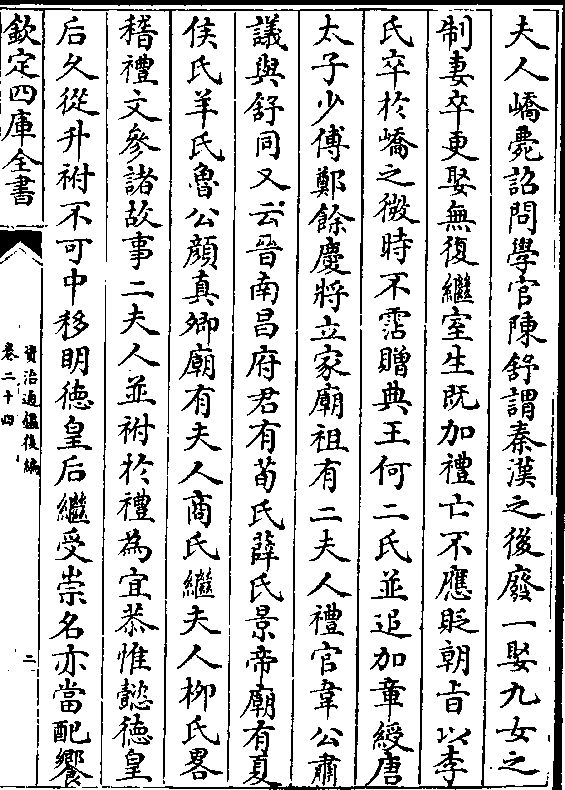 夫人嶠薨詔問學官陳舒謂秦漢之後廢一娶九女之
制妻卒更娶無復繼室生既加禮亡不應貶朝旨以李
氏卒於嶠之微時不霑贈典王何二氏並追加章綬唐
太子少傅鄭餘慶將立家廟祖有二夫人禮官韋公肅
議與舒同又云晉南昌府君有荀氏薛氏景帝廟有夏
侯氏羊氏魯公顔真卿廟有夫人商氏繼夫人柳氏畧
稽禮文參諸故事二夫人並祔於禮為宜恭惟懿德皇
后久從升祔不可中移明德皇后繼受崇名亦當配饗
欽定四庫全書
資治通鑑後編
卷二十四
二